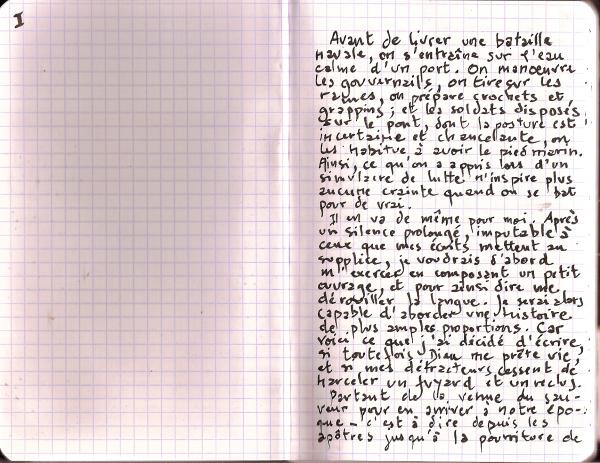 I
Avant de livrer une bataille
navale, on s'entraîne sur l'eau
calme d'un port. On manœuvre
les gouvernails, on tire sur les
rames, on prépare crochets et
grappins ; et les soldats disposés
sur le pont, dont la posture est
incertaine et chancelante, on
les habitue à avoir le pied marin.
Ainsi, ce qu'on a appris lors d'un
simulacre de lutte n'inspire plus
aucune crainte quand on se bat
pour de vrai.
Il en va de même pour moi. Après
un silence prolongé, imputable à
ceux que mes écrits mettent au
supplice, je voudrais d'abord
m'exercer en composant un petit
ouvrage, et pour ainsi dire me
dérouiller la langue. Je serai alors
capable d'aborder une histoire
de plus amples proportions. Car
voici ce que j'ai décidé d'écrire,
si toutefois Dieu me prête vie,
et si mes détracteurs cessent de
harceler un fuyard et un reclus.
Partant de la venue du sau-
veur pour en arriver à notre épo-
que - c'est à dire depuis les
apôtres jusqu'à la pourriture de